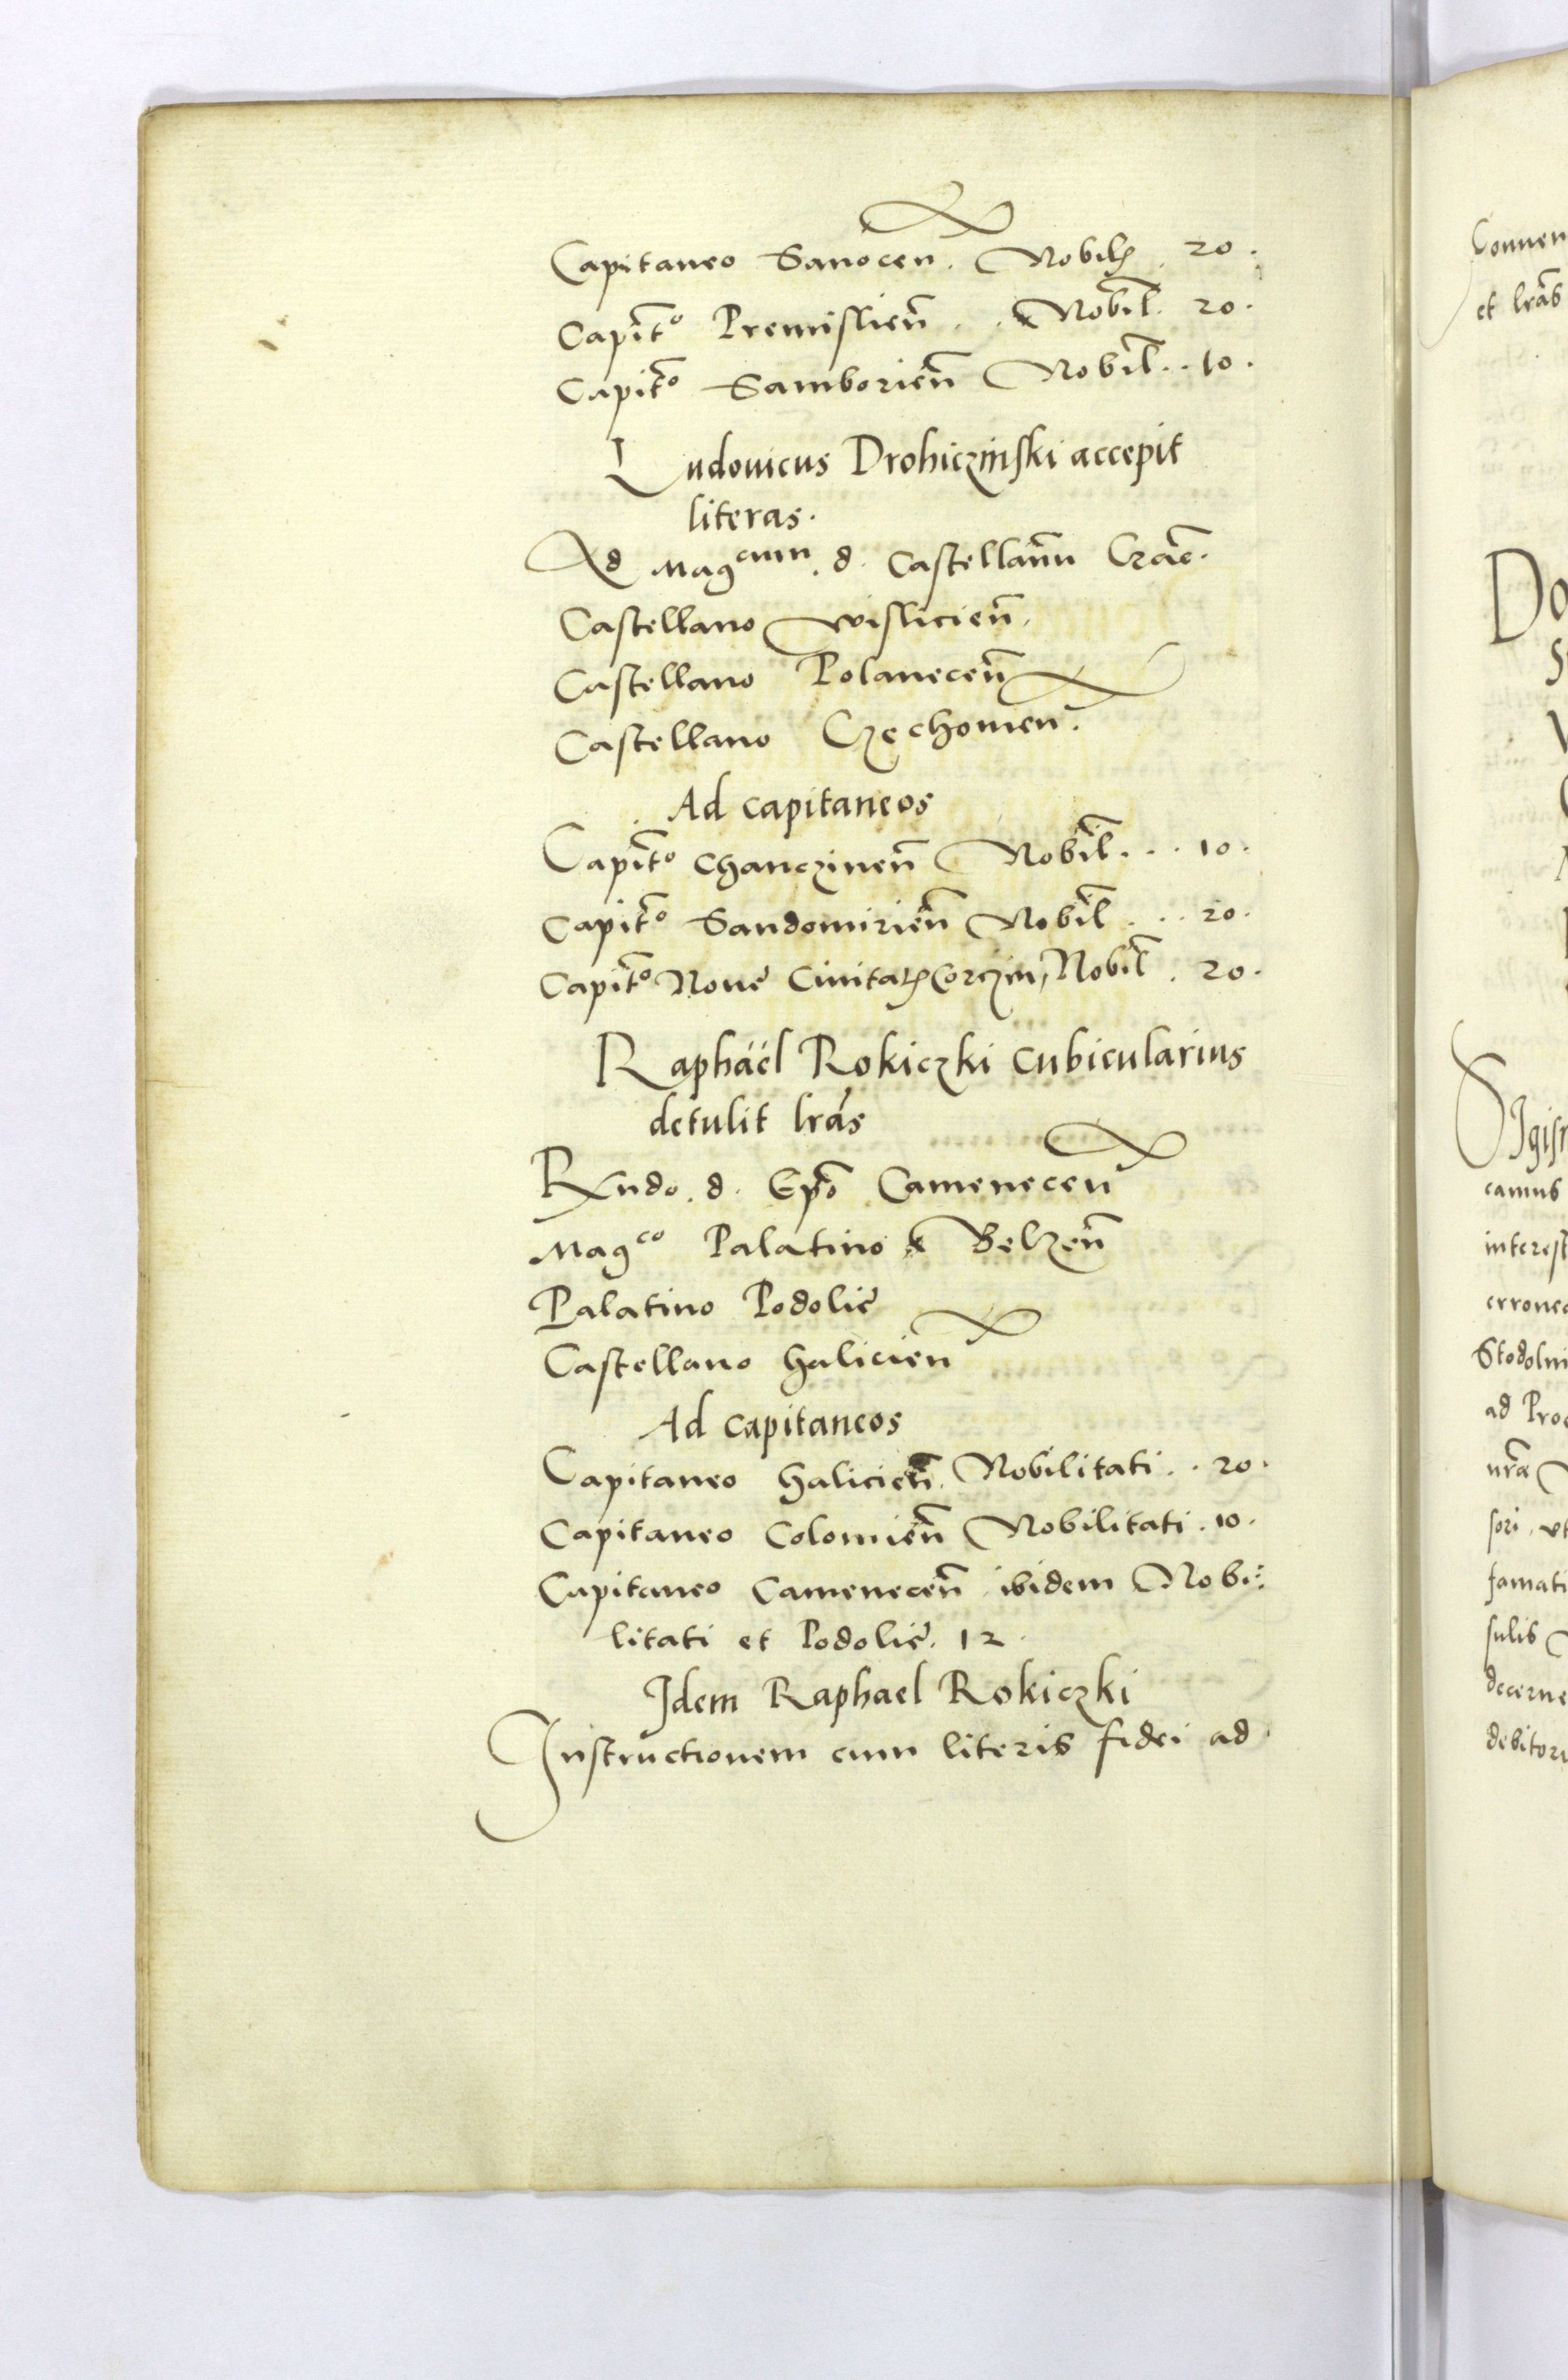 Capitaneo Sanocen. Nobil. 20.
Capit̃o Premislien̄ .. Nobil̃. 20.
Capit̃o Samborien̄ Nobil̃.. 10.
Ludouicus Drohiczinski accepit
literas.
Ad Magcum. d. Castellanũ Crac̃.
Castellano wislicien̄.
Castellano Polanecen̄
Castellano Czechouien.
Ad capitaneos
Capit̃o Chanczinen̄ Nobil̃... 10.
Capit̃o Sandomirien̄ Nobil̃ ... 20.
Capit̃o Noue Ciuitatꝭ Corczin, Nobil̃. 20.
Raphäel Rokiczki cubicularius
detulit lrãs
Rxndo. d. Epõ Camenecen̄
Magco Palatino Belzen̄
Palatino Podolie
Castellano halicien̄
Ad capitaneos
Capitaneo halicien̄. Nobilitati.. 20.
Capitaneo Colomien̄ Nobilitati. 10.
Capitaneo Camenecen̄ ibidem Nobi:
litati et Podolie. 12.
Idem Raphael Rokiczki
Instructionem cum literis fidei ad
Conuen
et lrãs
Do
Sigis
camus
interest
errone
Stodolni
ad Pro
nrã
sori. vt
famati
sulis
decerne
debitori